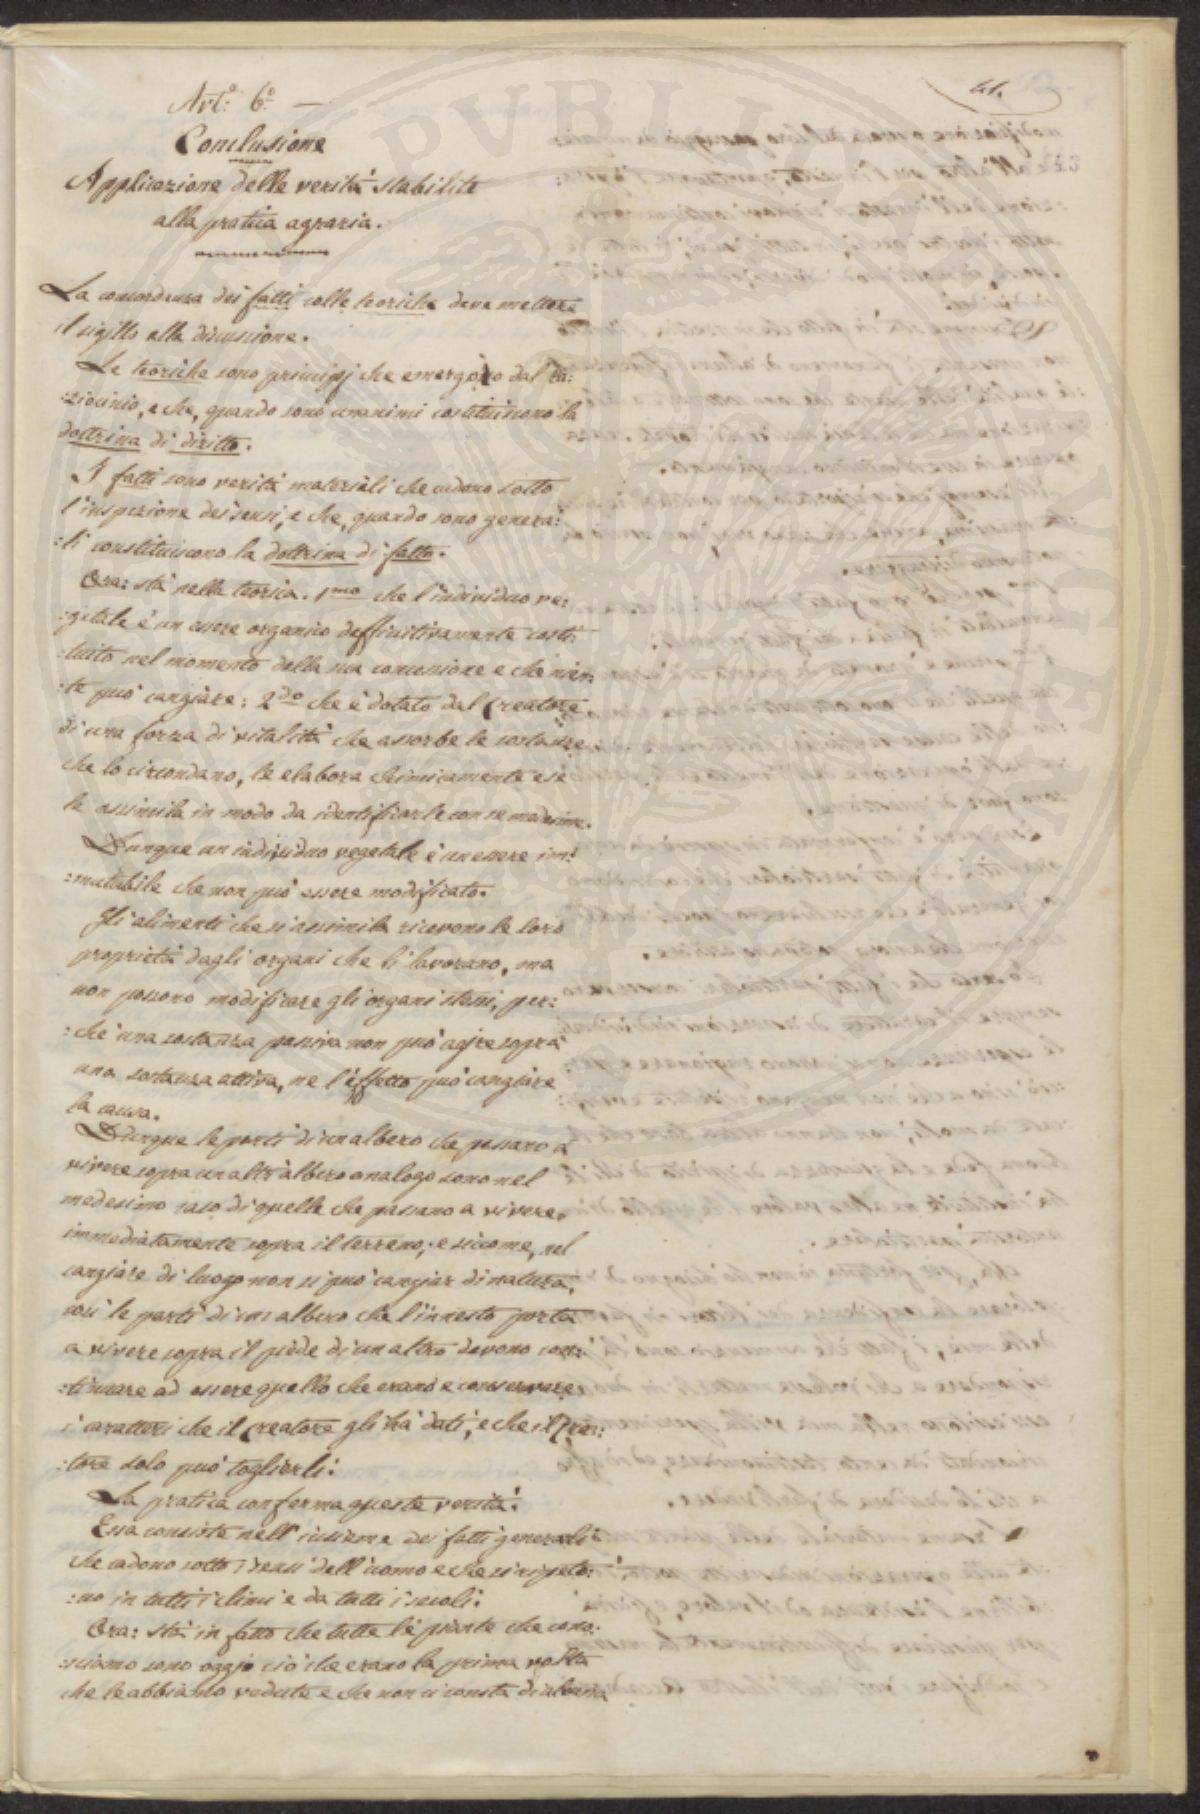 41.
543
Art.º 6.º —
Conclusione
Applicazione delle verità stabilite
alla pratica agraria.
La concordanza dei fatti colle teoriche deve mettere
il sigillo alla discussione.
Le teoriche sono principj che emergono dal ra:
:ziocinio, e che, quando sono unanimi costituiscono la
dottrina di diritto.
I fatti sono verità materiali che cadono sotto
l'inspezione dei sensi, e che, quando sono genera:
:li constituiscono la dottrina di fatto.
Ora: stà nella teorica. 1mo che l'individuo ve:
:getale è un essere organico deffinitivamente costi:
:tuito nel momento della sua concezione e che nien:
:te può cangiare: 2do che è dotato dal Creatore
di una forza di vitalità che assorbe le sostanze
che lo circondano, le elabora chimicamente e se
le assimila in modo da identificarle con se medesime.
Dunque un individuo vegetale è un essere im:
:mutabile che non può essere modificato.
Gli alimenti che si assimila ricevono le loro
proprietà dagli organi che li lavorano, ma
non possono modificare gli organi stessi, per:
:chè una sostanza passiva non può agire sopra
una sostanza attiva, ne l'effetto può cangiare
la causa.
Dunque le parti di un albero che passano a
vivere sopra un altr'albero analogo sono nel
medesimo caso di quelle che passano a vivere
immediatamente sopra il terreno; e siccome, nel
cangiare di luogo non si può cangiar di natura,
così le parti di un albero che l'innesto porta
a vivere sopra il piede di un altro devono con:
:tinuare ad essere quello che erano e conservare
i caratteri che il Creatore gli hà dati, e che il Crea:
:tore solo può toglierli.
La pratica conferma queste verità.
Essa consiste nell'insieme dei fatti generali
che cadono sotto i sensi dell'uomo e che si ripeto:
:no in tutti i climi e da tutti i secoli.
Ora: stà in fatto che tutte le piante che cono:
:sciamo sono oggi ciò che erano la prima volta
che le abbiamo vedute e che non ci consta di alcuna
PVBLICA